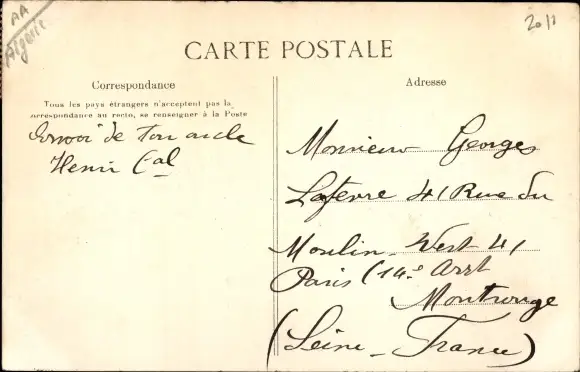 AA
Algérie
20/1
CARTE POSTALE
Correspondance
Tous les pays étrangers n'acceptent pas la
correspondance au recto, se renseigner à la Poste
Envoi de ton oncle
Henri Cal
Adresse
Monsieur Georges
Laferre 41 Rue du
Moulin-Vert 41
Paris (14e Arrt
Montrouge
(Seine - France)